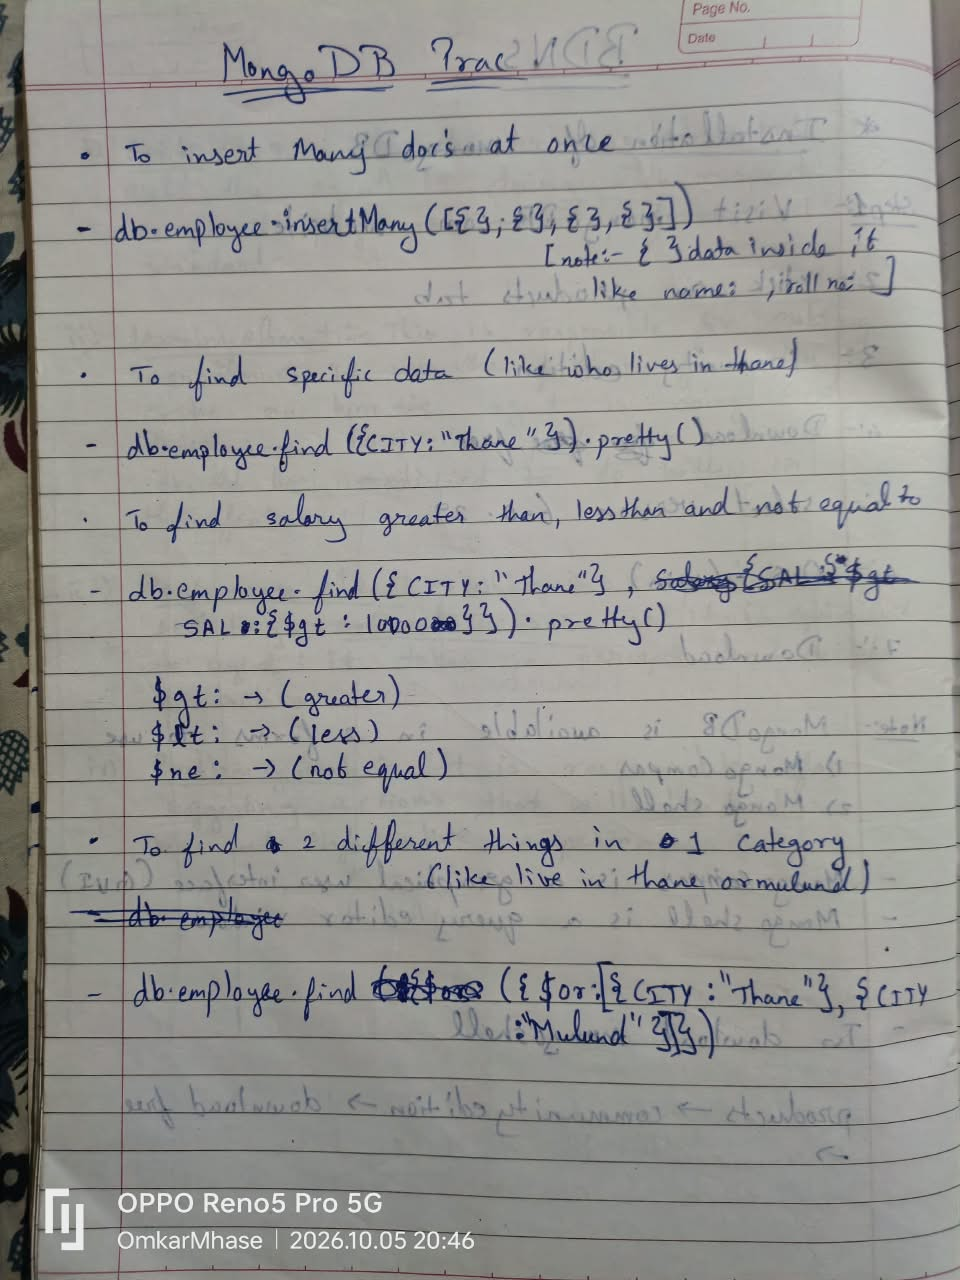 Page No.
Date
MongoDB Prac
• To insert Many doc's at once
- db.employee.insertMany([{ }, { }, { }, { }.])
[note:- { } data inside it
like name: , roll no: ]
• To find specific data (like who lives in thane)
- db.employee.find({CITY: "Thane"}).pretty()
• To find salary greater than, less than and not equal to
- db.employee.find({CITY: "Thane"} ,
SAL :{$gt : 10000}}).pretty()
$gt: → (greater)
$lt: → (less)
$ne: → (not equal)
• To find 2 different things in 1 category
(like live in thane or mulund)
- db.employee
- db.employee.find ({$or:[{CITY : "Thane"}, {CITY
:"Mulund"}]})
OPPO Reno5 Pro 5G
OmkarMhase | 2026.10.05 20:46